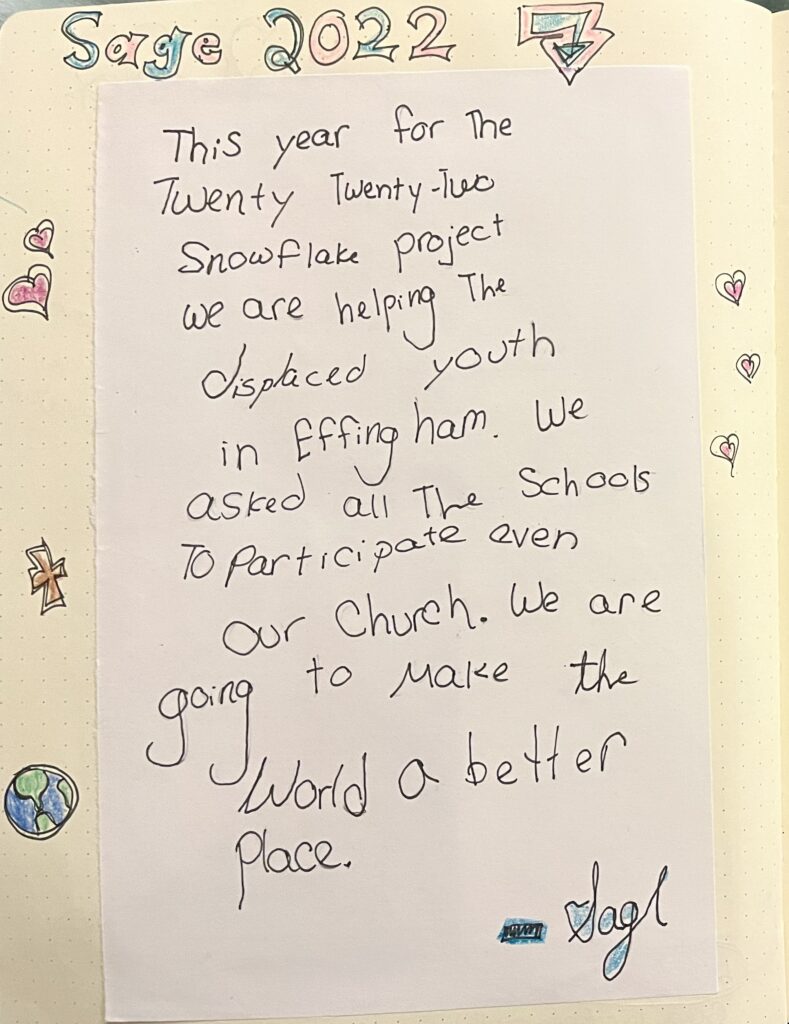 Sage 2022
This year for The
Twenty Twenty-Two
Snowflake project
we are helping The
displaced youth
in Effingham. We
asked all The Schools
To Participate even
our Church. We are
going to Make the
World a better
place.
Sage